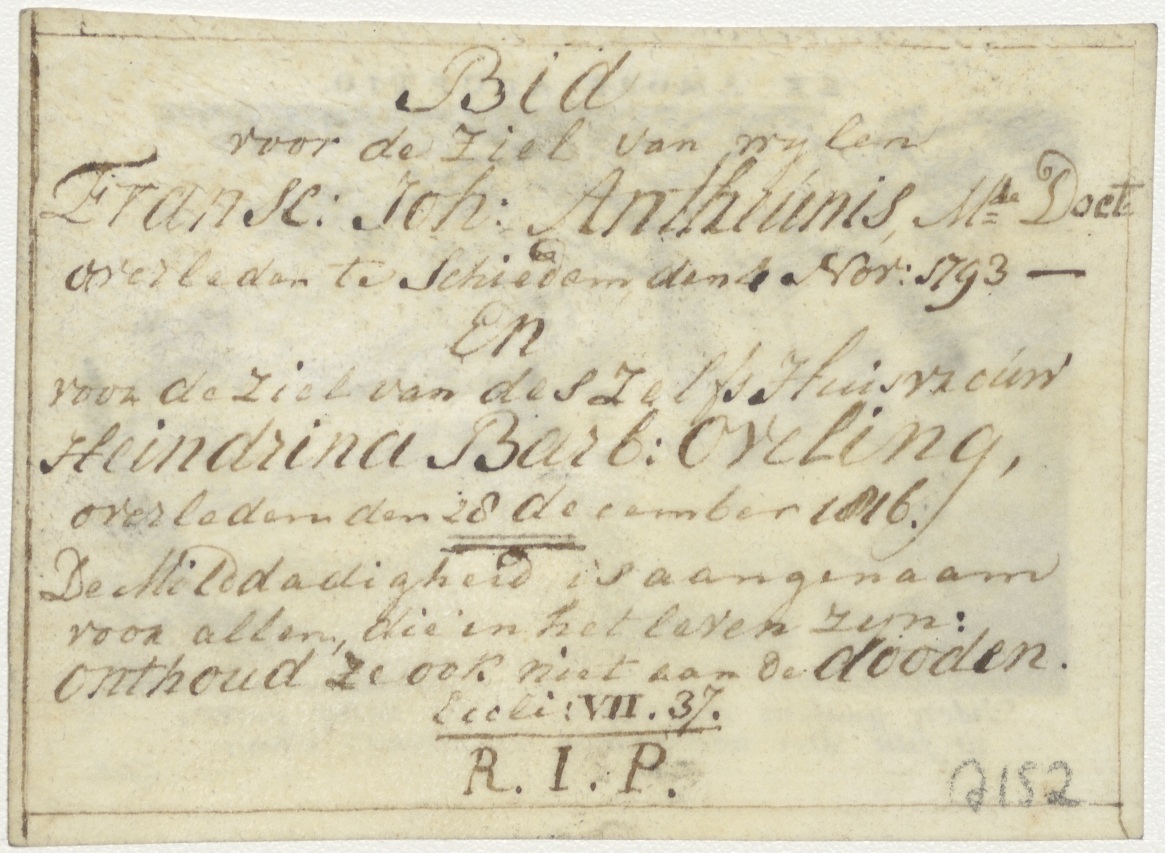 Bid
voor de Ziel van wylen
Fransc: Joh: Antheúnis, Mde Doct
overleden te Schiedam, den 4 Nov: 1793 —
En
voor de Ziel van des Zelfs Huisvroúw
Heindrina Barb: Oveling,
overleden den 28 december 1816.
De Milddadigheid is aangenaam
voor allen, die in het leven zijn:
onthoud ze ook niet aan de dooden.
Eccli: VII. 37.
R. I. P.
2152